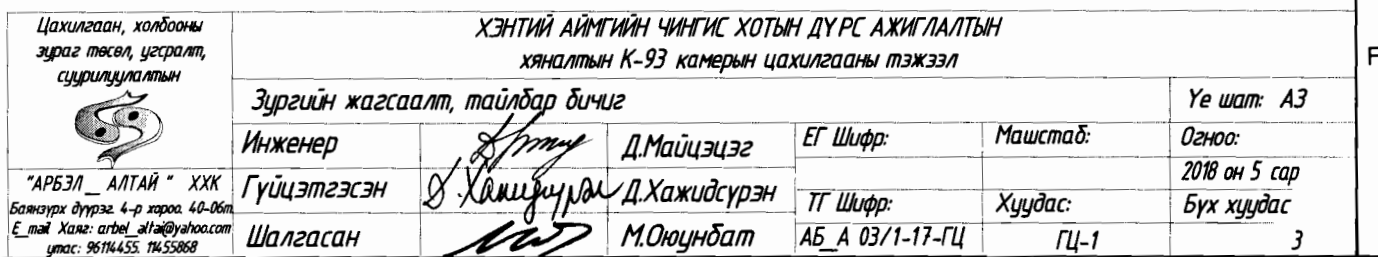 Цахилгаан, холбооны
зураг төсөл, угсралт,
суурилуулалтын
"АРБЭЛ _ АЛТАЙ " ХХК
Баянзүрх дүүрэг. 4-р хороо. 40-06т
E_mail Хаяг: arbel_altai@yahoo.com
утас: 96114455. 11455868
ХЭНТИЙ АЙМГИЙН ЧИНГИС ХОТЫН ДҮРС АЖИГЛАЛТЫН
хяналтын К-93 камерын цахилгааны тэжээл
Зургийн жагсаалт, тайлбар бичиг
Үе шат: АЗ
Инженер
Д.Майцэцэг
ЕГ Шифр:
Машстаб:
Огноо:
2018 он 5 сар
Гүйцэтгэсэн
Д.Хажидсүрэн
Д.Хажидсүрэн
ТГ Шифр:
Хуудас:
Бүх хуудас
Шалгасан
М.Оюунбат
АБ_А 03/1-17-ГЦ
ГЦ-1
3